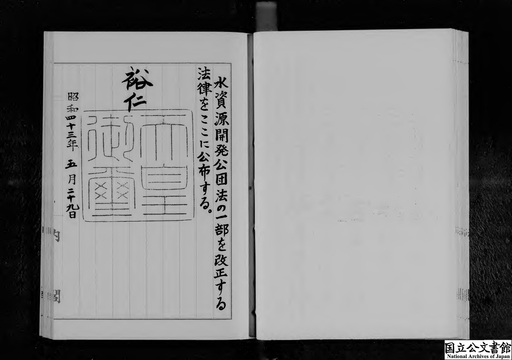 水資源開発公団法の一部を改正する
法律をここに公布する。
裕仁
天皇
御璽
昭和四十三年五月二十九日
内閣
国立公文書館
National Archives of Japan